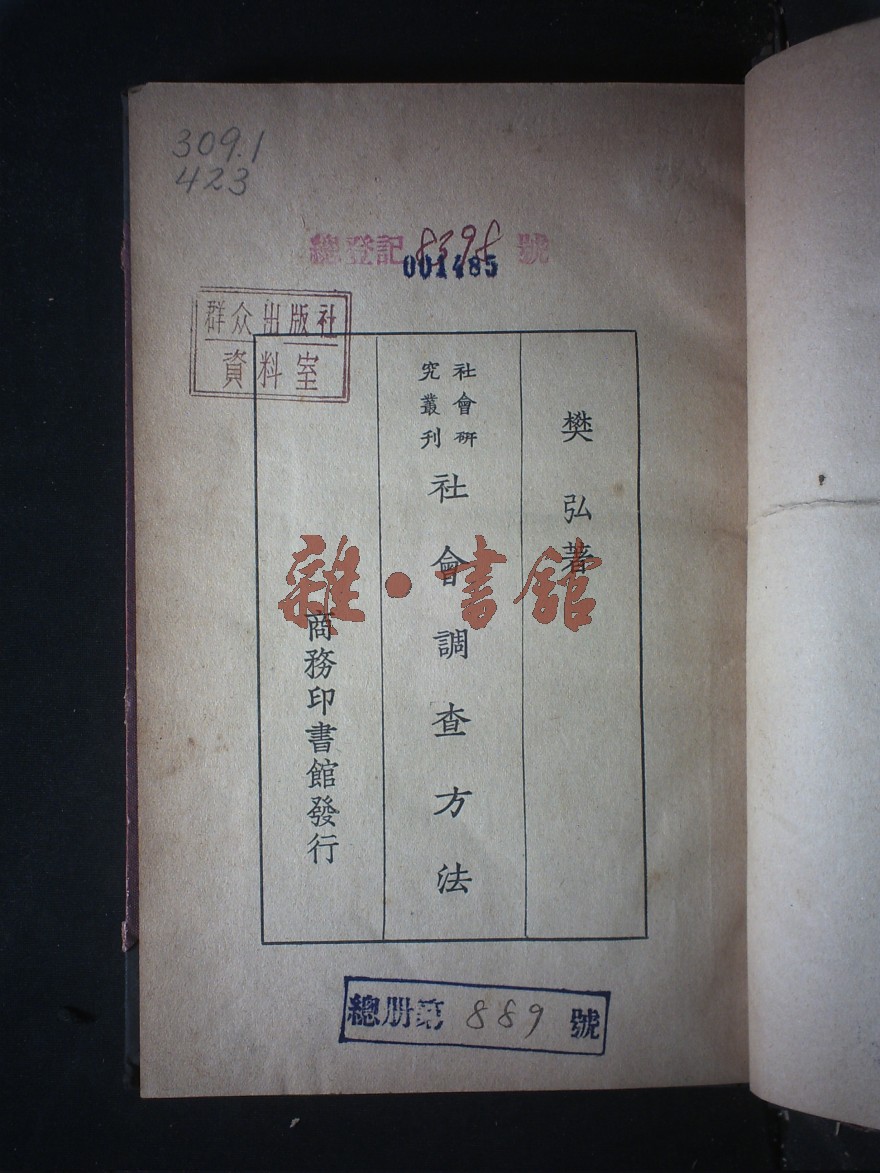 309.1
423
總登記8398號
001485
群众出版社
資料室
樊弘著
社會研
究叢刊
社會調查方法
商務印書館發行
雜·書館
總册第 889 號